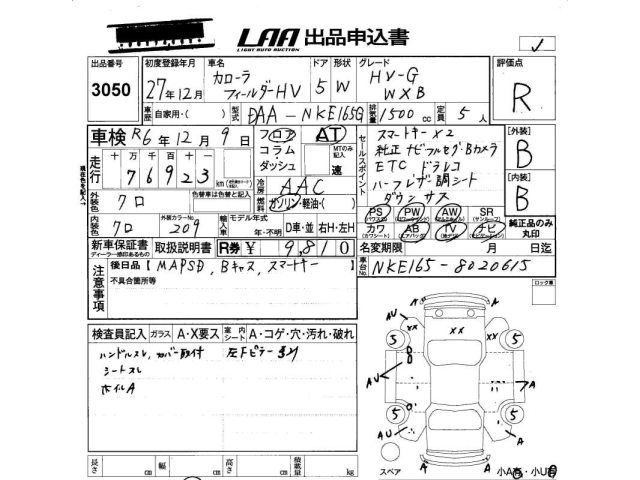 LAA 出品申込書
LIGHT AUTO AUCTION
出品番号 初度登録年月 車名 ドア 形状 グレード 評価点
3050 27年12月 カローラ フィールダーHV 5 W HV-G W×B R
車歴 自家用・( ) 型式 DAA-NKE165G 排気量 1500cc 定員 5人
車検 R6年12月9日 フロア AT セールスポイント スマートキー×2 [外装]
走行 十万 万 千 百 十 一 コラム MTのみ記入 純正ナビフルセグ・Bカメラ B
76923 km ダッシュ 速 ETC ドラレコ [内装]
現在色を記入 冷房 AAC ハーフレザー調シート B
外装色 クロ 色替車は色替と記入 燃料 ガソリン・軽油・( ) ダウンサス
PS PW AW SR 純正品のみ丸印
内装色 クロ 外装カラーNo. 209 輸入車 モデル年式 年・不明 D車・並 右H・左H カワ AB TV ナビ
新車保証書 取扱説明書 R券 ¥9,810 名変期限 月 日迄
ディーラー捺印あるもの
車台No. NKE165-8020615
注意事項 後日品 [MAPSD, Bキャス, スマートキー ロック車
不具合箇所等
検査員記入 ガラス A・X要ス 室内シート A・コゲ・穴・汚れ・破れ
ハンドルスレ, カバー取付 左Fピラー
シートスレ
ホイルA
AU A A
×× ×× ××
5 5
AU A
5 5
AU A
A A
スペア 小A・小U
長さ cm 幅 cm 高さ cm 積載量 kg